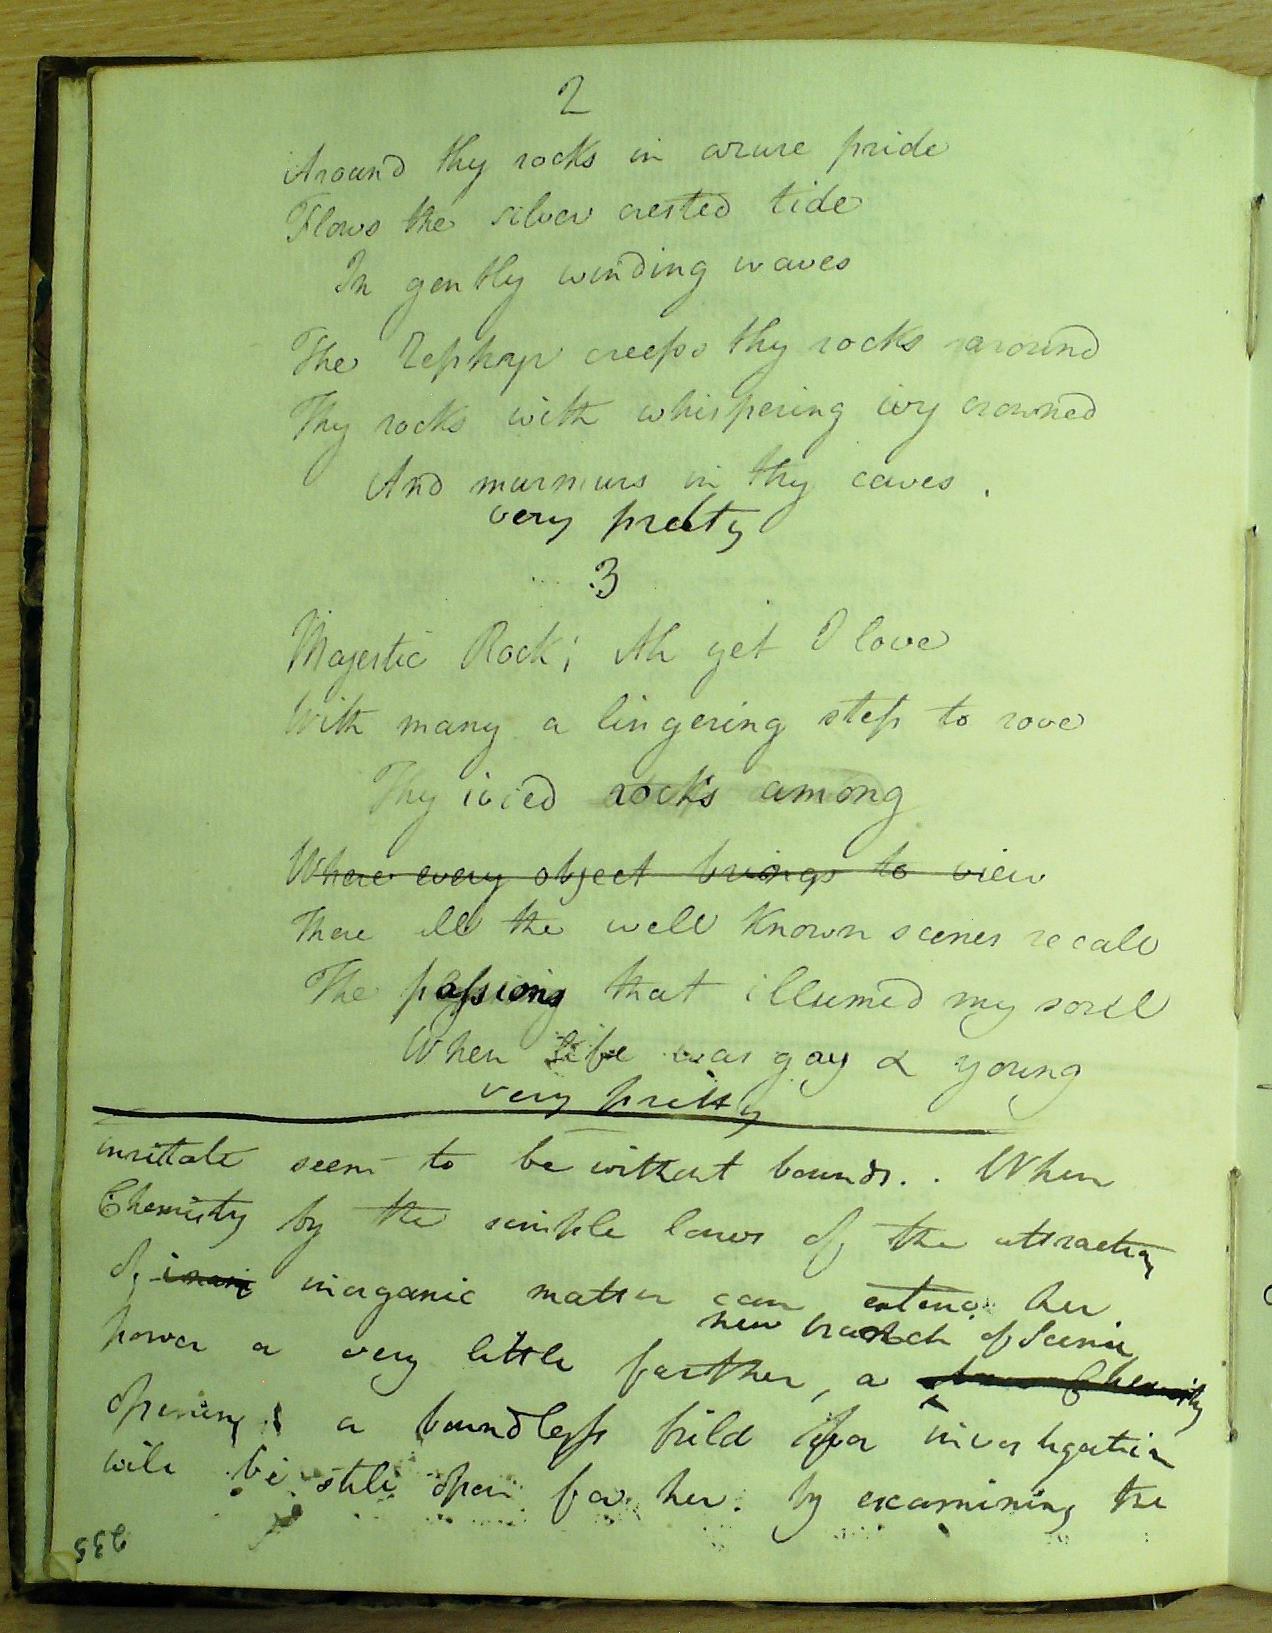 2
Around thy rocks in azure pride
Flows the silver crested tide
In gently winding waves
The Zephyr creeps thy rocks around
Thy rocks with whispering ivy crowned
And murmurs in thy caves.
very pretty
3
Majestic Rock; Ah yet I love
With many a lingering step to rove
Thy ivied rocks among
Where every object brings to view
There all the well known scenes recall
The passions that illumed my soul
When life was gay & young
very pretty
seem to be without bounds.. When
Chemistry by the simple laws of the attraction
of inorganic matter can extend her
new branch of Science
power a very little farther, a Chemistry
opening a boundless field for investigation
will be still open for her. By examining the
235